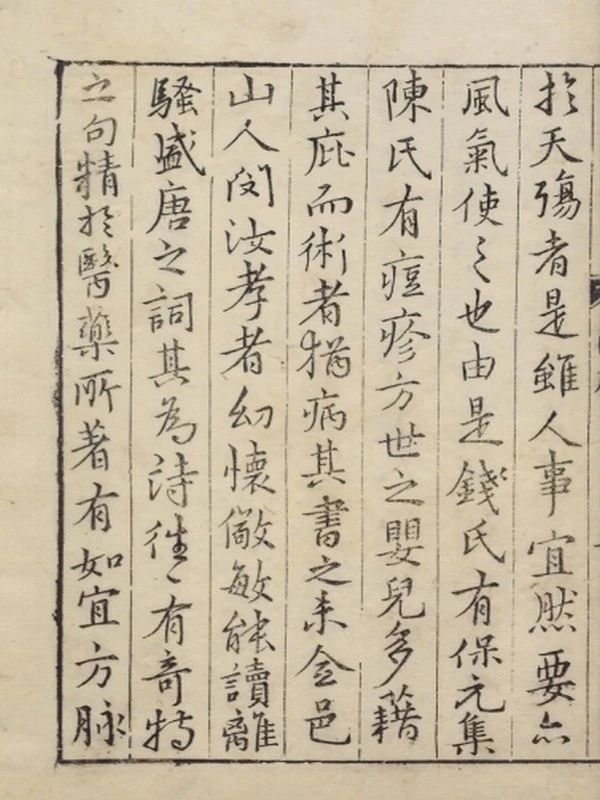 於夭殤者是雖人事宜然要亦
風氣使之也由是錢氏有保元集
陳氏有痘疹方世之嬰兒多藉
其庇而術者猶病其書之未全邑
山人閔汝孝者幼懷儆敏能讀離
騷盛唐之詞其為詩往々有奇特
之句精於醫藥所著有如宜方脉